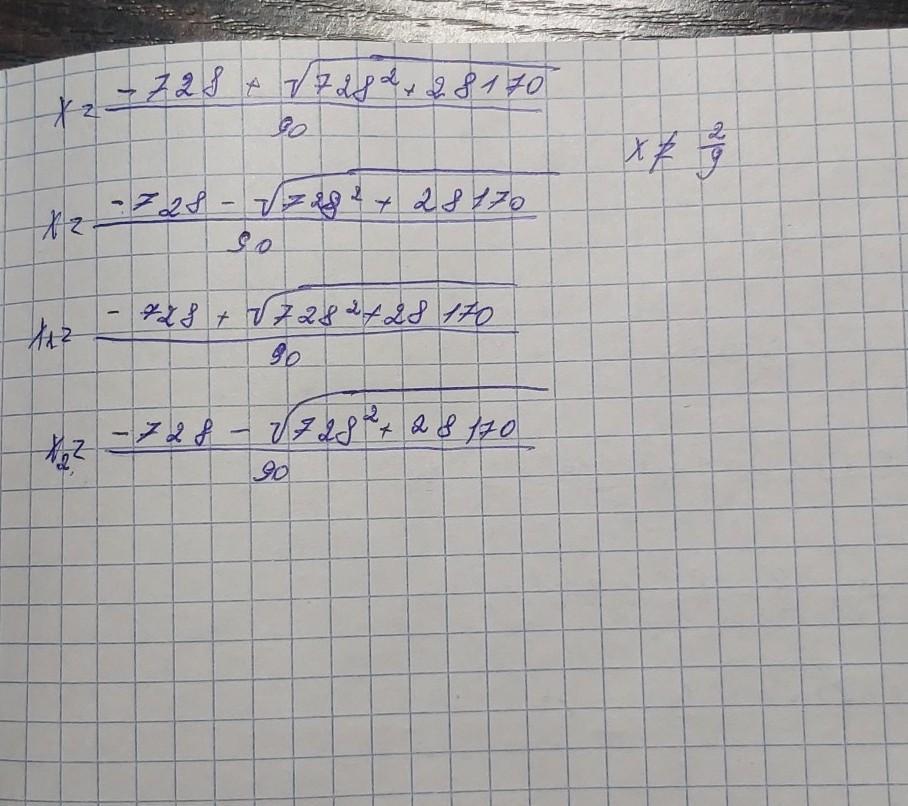 x = (-728 + √(728² + 28170)) / 90
x ≠ 2/9
x = (-728 - √(728² + 28170)) / 90
x₁ = (-728 + √(728² + 28170)) / 90
x₂ = (-728 - √(728² + 28170)) / 90